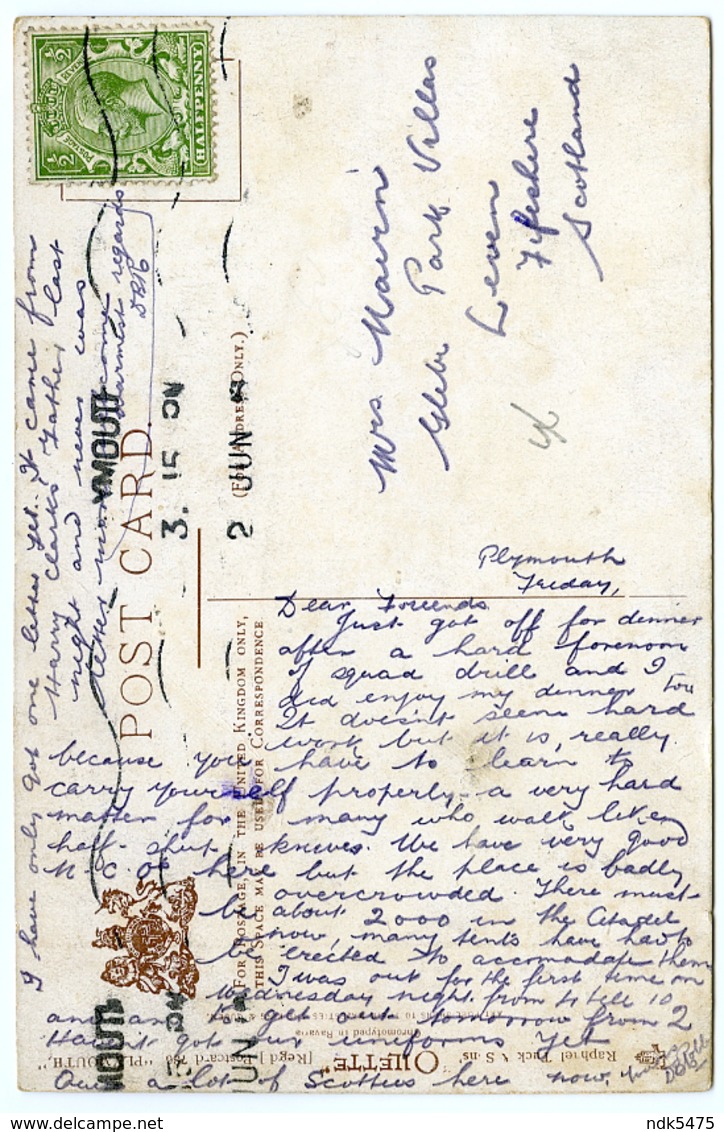 POSTAGE
HALFPENNY
1/2
1/2
Mrs Mairn
Glebe Park Villas
Leven
Fifeshire
Scotland
POST CARD
(FOR ADDRESS ONLY.)
YMOUTH
3. 15 PM
2 JUN
FOR POSTAGE IN THE UNITED KINGDOM ONLY,
THIS SPACE MAY BE USED FOR CORRESPONDENCE
Plymouth
Friday,
Dear Freends
Just got off for dinner
after a hard forenoon
of squad drill and I
did enjoy my dinner too
It doesnt seem hard
work but it is, really
because you have to learn to
carry yourself properly - a very hard
matter for many who walk like
half-shut knives. We have very good
N.C.Os here but the place is badly
overcrowded. There must
be about 2000 in the Citadel
now, many tents have had to
be erected to accomadate them
I was out for the first time on
Wednesday night from 4 till 10
and am to get out tomorrow from 2
Havn't got our uniforms yet
Quite a lot of Scotties here now.
I have only got one letter yet. It came from
Harry Clark's Father last
night and never was
letter more welcome
Warmest regards
Raphael Tuck & Sons'
"OILETTE"
[Regd.] Postcard
"PLYMOUTH"
Chromotyped in Bavaria
YMOUTH
PM
JUN
ndk5475